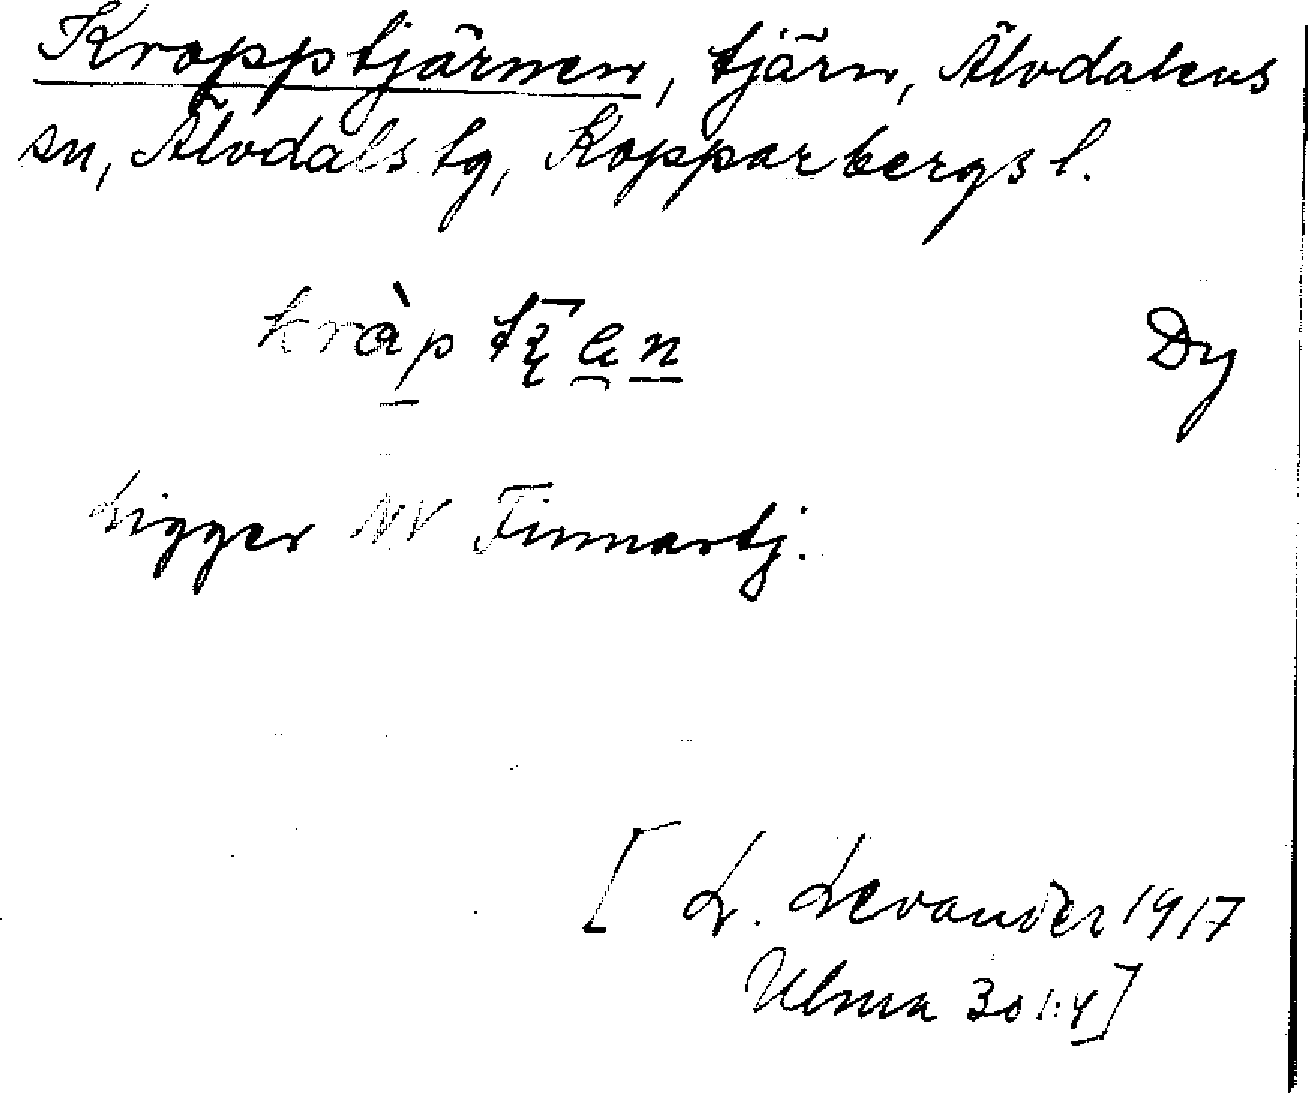 Kropptjärnen, tjärn, Älvdalens
sn, Älvdals tg, Kopparbergs l.
Dy
Ligger NV Finnartj.
[L. Levander 1917
Ulma 301:4]